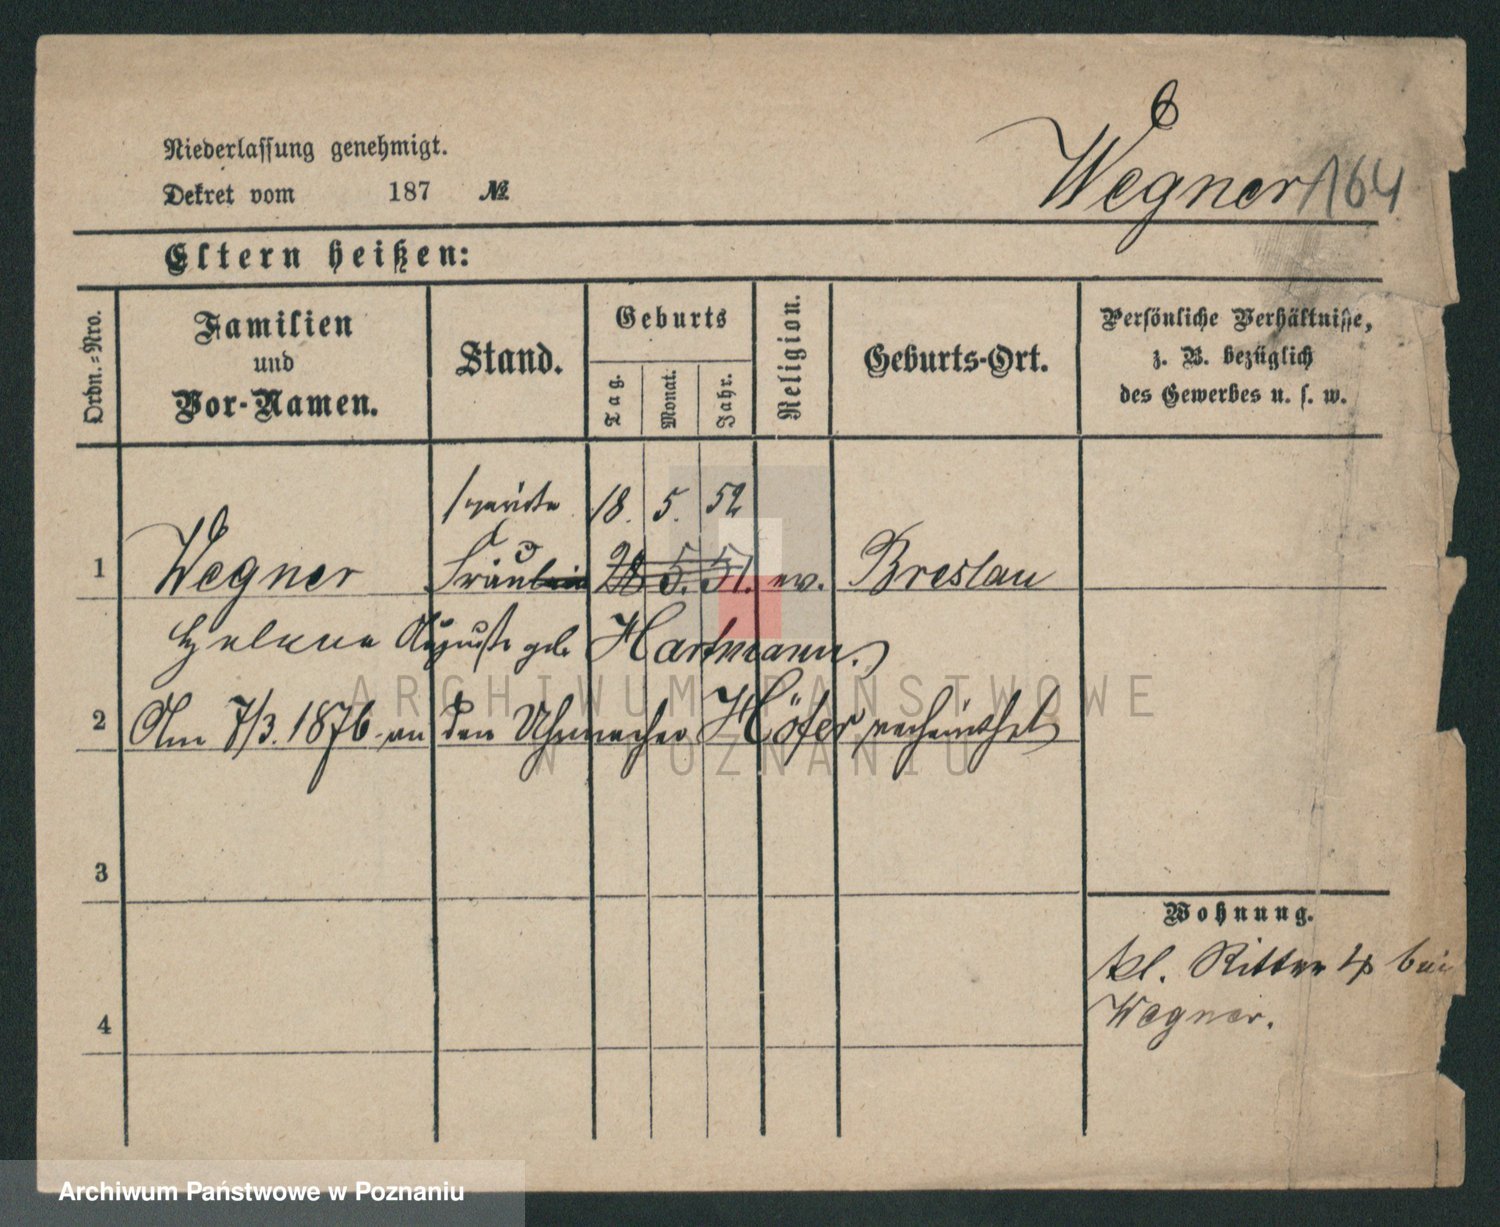 6
Niederlassung genehmigt.
Wegner 164
Dekret vom 187 №
Eltern heißen:
Ordn.-Nro.
Familien
und
Vor-Namen.
Stand.
Geburts
Tag.
Monat.
Jahr.
Religion.
Geburts-Ort.
Persönliche Verhältnisse,
z. B. bezüglich
des Gewerbes u. s. w.
18. 5. 52
1 Wegner Fräulein 28 5. 51. ev. Breslau
Helene Auguste geb. Hartmann.
2 Am 7/3. 1876 an den Uhrmacher Höfer verheirathet
ARCHIWUM PAŃSTWOWE
W POZNANIU
3
Wohnung.
kl. Ritter 4 bei
Wegner.
4
Archiwum Państwowe w Poznaniu